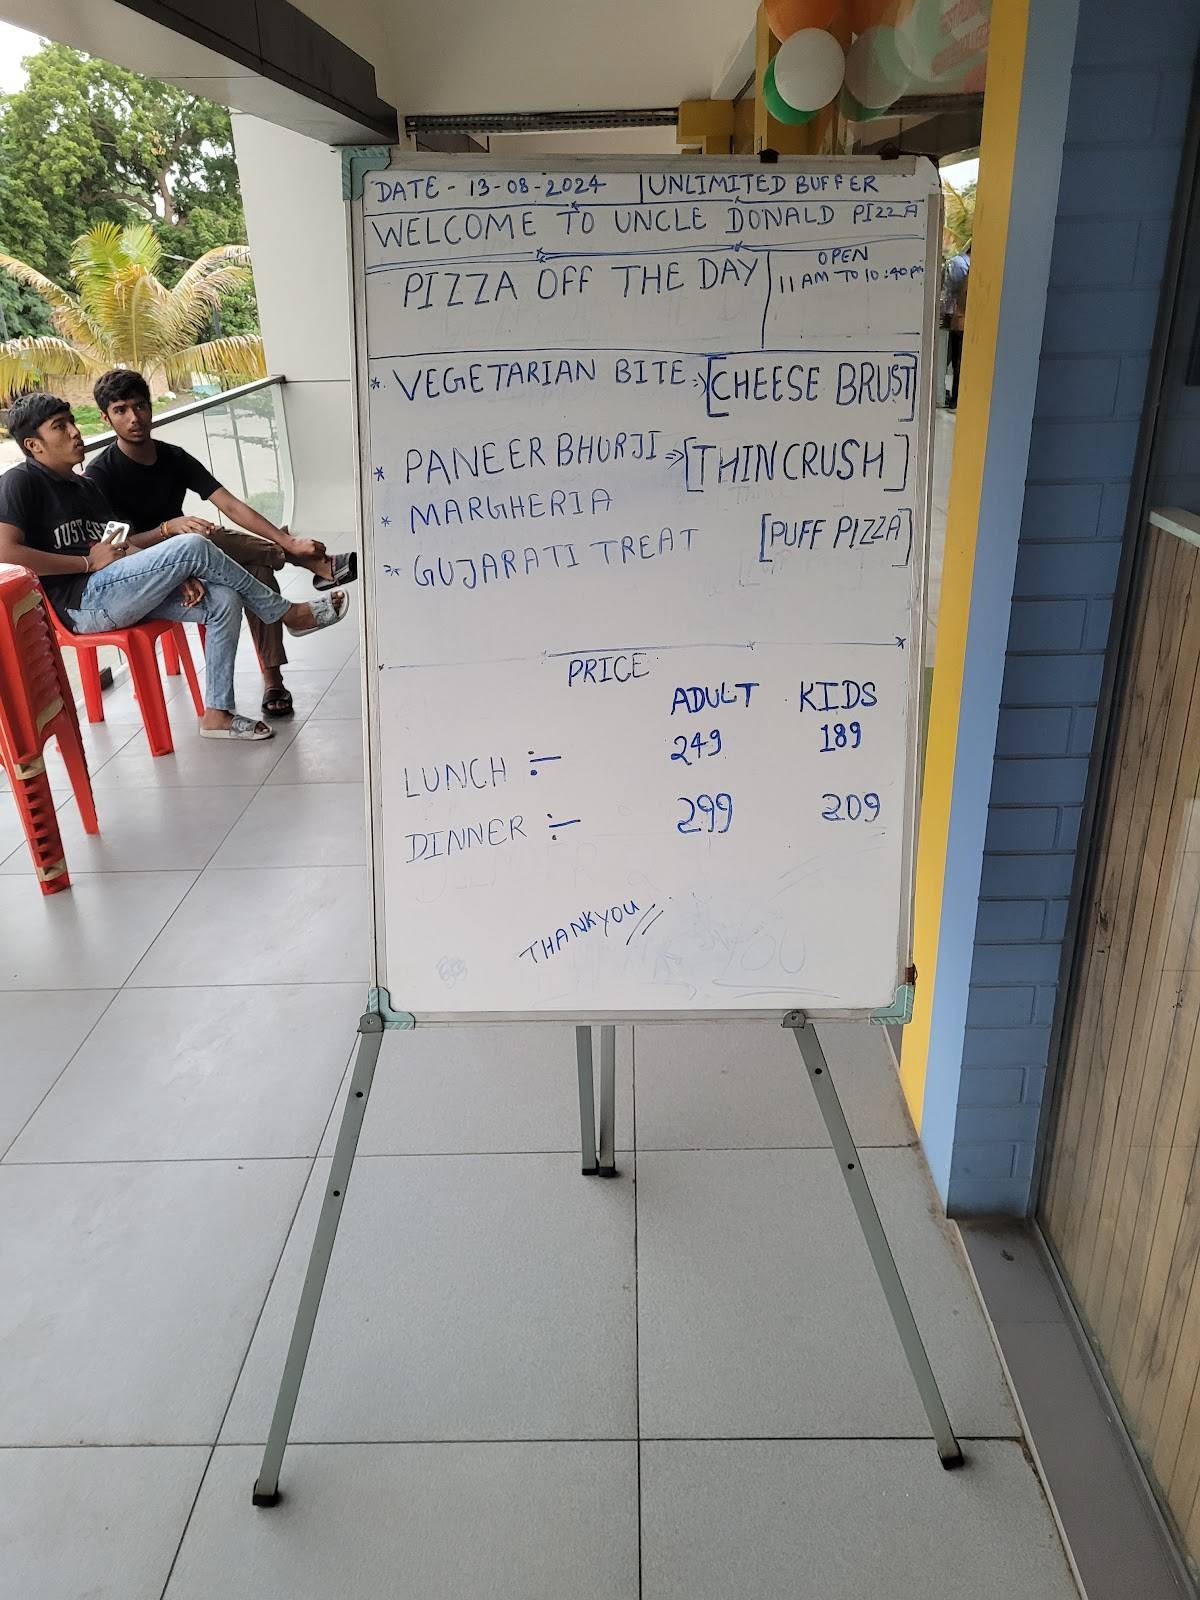 DATE - 13-08-2024 UNLIMITED BUFFER
WELCOME TO UNCLE DONALD PIZZA
PIZZA OFF THE DAY
OPEN
11 AM TO 10:40 PM
* VEGETARIAN BITE => [CHEESE BRUST]
* PANEER BHURJI => [THIN CRUSH]
* MARGHERIA
* GUJARATI TREAT [PUFF PIZZA]
PRICE
ADULT KIDS
LUNCH :- 249 189
DINNER :- 299 209
THANKYOU //
JUST SE